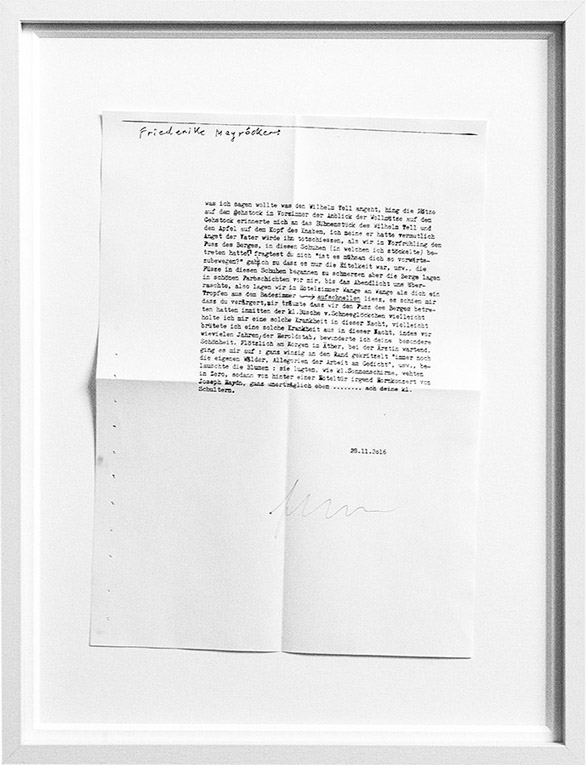 Friederike Mayröcker:
was ich sagen wollte was den Wilhelm Tell angeht, hing die Mütze
auf dem Gehstock im Vorzimmer der Anblick der Wollmütze auf dem
Gehstock erinnerte mich an das Bühnenstück des Wilhelm Tell und
den Apfel auf dem Kopf des Knaben, ich meine er hatte vermutlich
Angst der Vater würde ihn totschieszen, als wir im Vorfrühling den
Fusz des Berges, in diesen Schuhen (in welchen ich stöckelte) be-
treten hatten fragtest du mich "ist es mühsam dich so vorwärts-
zubewegen?" gab ich zu dasz es nur die Eitelkeit war, usw., die
Füsze in diesen Schuhen begannen zu schmerzen aber die Berge lagen
in schönen Farbschichten vor mir, bis das Abendlicht uns über-
raschte, also lagen wir im Hotelzimmer Wange an Wange als dich ein
Tropfen aus dem Badezimmer aufschnellen liesz, es schien mir
dasz du verärgert, mir träumte dasz wir den Fusz des Berges betre-
ten hatten inmitten der kl.Büsche v.Schneeglöckchen vielleicht
holte ich mir eine solche Krankheit in dieser Nacht, vielleicht
brütete ich eine solche Krankheit aus in dieser Nacht, indes vor
wievielen Jahren, der Heroldstab, bewunderte ich deine besondere
Schönheit. Plötzlich am Morgen im Äther, bei der Ärztin wartend,
ging es mir auf : ganz winzig an den Rand gekritzelt "immer noch
die eigenen Wälder, Allegorien der Arbeit am Gedicht", usw., be-
lauschte die Blumen : sie lugten, wie kl.Sonnenschirme, wehten
in Zero, sodann von hinter einer Hoteltür irgend Hornkonzert von
Joseph Haydn, ganz unerträglich oben ........ ach deine kl.
Schultern.
28.11.2016